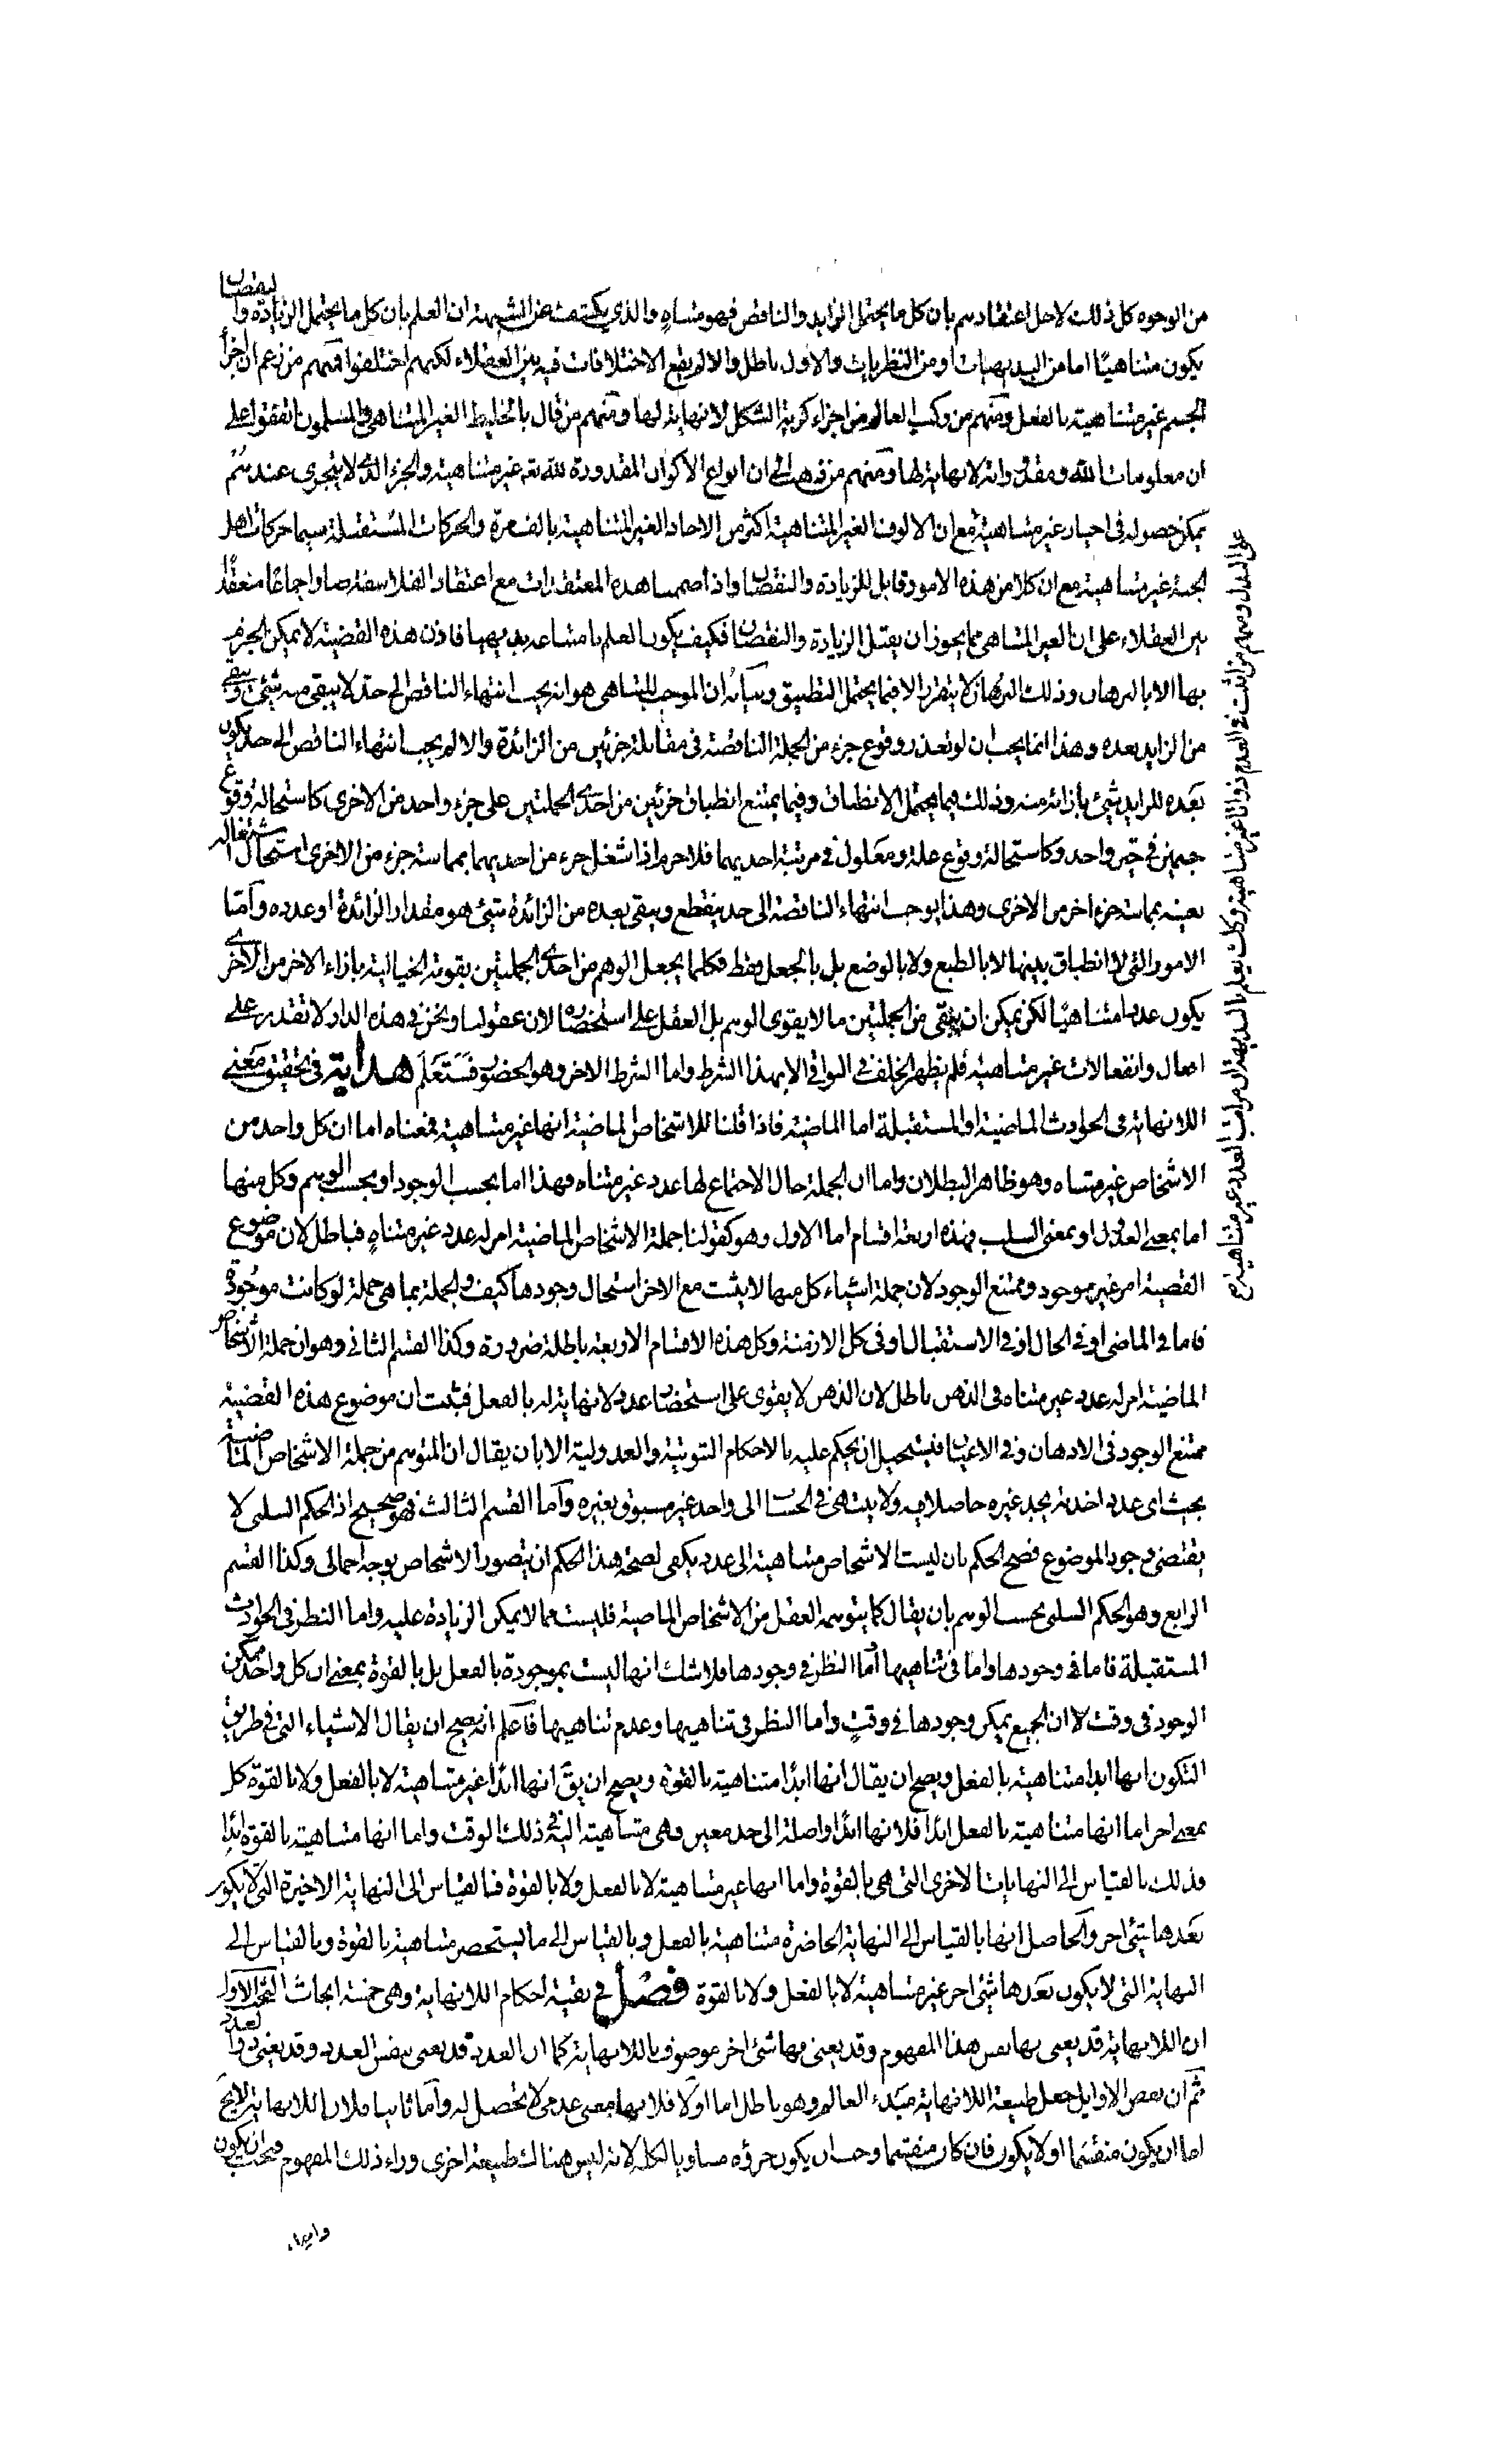 من الوجوه كل ذلك لاجل اعتقادهم بان كل ما يحتمل الزايد والناقص فهو متناه والذي يكشف عن الشبهة ان العلم بان كل ما يحتمل الزيادة والنقصان
يكون متناهيًا اما من البديهيات او من النظريات والاول باطل والا لم يقع الاختلافات فيه بين العقلاء لكنهم اختلفوا فمنهم من زعم ان اجزأ
الجسم غير متناهية بالفعل ومنهم من ركب العالم من اجزاء كرية الشكل لا نهاية لها ومنهم من قال بالخليط الغير المتناهى والمسلمون اتفقوا على
ان معلومات الله ومقدوراته لا نهاية لها ومنهم من ذهب الى ان انواع الاكوان المقدورة لله تعه غير متناهية والجزء الذى لا يتجزى عندهم
يمكن حصوله فى احياز غير متناهية مع ان الالوف الغير المتناهية اكثر من الاحاد الغير المتناهية بالف مرة والحركات المستقبلة سيما حركات اهل
الجنة غير متناهية مع ان كلا من هذه الامور قابل للزيادة والنقصان واذا ضممنا هذه المعتقدات مع اعتقاد الفلاسفة صار اجماعًا منعقدًا
بين العقلاء على ان الغير المتناهى مما يجوز ان يقبل الزيادة والنقصان فكيف يكون العلم بامتناعه بديهيا فاذن هذه القضية لا يمكن الجزم
بها الا بالبرهان وذلك البرهان لا يتقرر الا فيما يحتمل التطبيق وبيانه ان الموجب للتناهى هو انه يجب انتهاء الناقص الى حد لا يبقى منه شئ ويبقى
من الزايد بعده وهذا انما يجب ان لو تعذر وقوع جزء من الجملة الناقصة فى مقابلة جزئين من الزائدة والا لم يجب انتهاء الناقص الى حد يكون
بعده للزايد شئ بازائه منه وذلك فيما يحتمل الانطباق وفيما يمتنع انطباق جزئين من احدى الجملتين على جزء واحد من الاخرى كاستحالة وقوع
جسمين فى حيز واحد وكاستحالة وقوع علة ومعلول فى مرتبة احديهما فلا جرم اذا شغل جزء من احديهما بمماسة جزء من الاخرى استحال اشتغاله
بعينه بمماسة جزء اخر من الاخرى وهذا يوجب انتهاء الناقصة الى حد ينقطع ويبقى بعده من الزائدة شئ هو مقدار الزائدة او عدده وأما
الامور التى لا انطباق بينها لا بالطبع ولا بالوضع بل بالجعل فقط فكلما يجعل الوهم من احدى الجملتين بقوته الخيالية بازاء الاخر من الاخرى
يكون عددا متناهيًا لكن يمكن ان يبقى من الجملتين ما لا يقوى الوهم بل العقل على استحضاره لان عقولنا ونحن فى هذه الدار لا تقدر على
افعال وانفعالات غير متناهية فلم يظهر الخلف فى البواقى الا بهذا الشرط واما الشرط الاخر وهو الحضور فستعلم هداية فى تحقيق معنى
اللانهاية فى الحوادث الماضية او المستقبلة اما الماضية فاذا قلنا للاشخاص الماضية انها غير متناهية فمعناه اما ان كل واحد من
الاشخاص غير متناه وهو ظاهر البطلان واما ان الجملة حال الاجتماع لها عدد غير متناه وهذا اما بحسب الوجود او بحسب الوهم وكل منها
اما بمعنى العدول او بمعنى السلب فهذه اربعة اقسام اما الاول وهو كقولنا جملة الاشخاص الماضية امر له عدد غير متناهٍ فباطل لان موضوع
القضية امر غير موجود وممتنع الوجود لان جملة اشياء كل منها لا يثبت مع الاخر استحال وجودها كيف والجملة بما هى جملة لو كانت موجودة
فاما فى الماضى او فى الحال او فى الاستقبال او فى كل الازمنة وكل هذه الاقسام الاربعة باطلة ضرورة وكذا القسم الثانى وهو ان جملة الاشخاص
الماضية امر له عدد غير متناه فى الذهن باطل لان الذهن لا يقوى على استحضار عدد لا نهاية له بالفعل فثبت ان موضوع هذه القضية
ممتنع الوجود فى الاذهان وفى الاعيان فيستحيل ان يحكم عليه بالاحكام الثبوتية والعدولية الا بان يقال ان المتوهم من جملة الاشخاص الماضية
بحيث اى عدد اخذته يجد غيره حاصلا فيه ولا ينتهى فى الحساب الى واحد غير مسبوق بغيره وأما القسم الثالث فهو صحيح اذ الحكم السلبى لا
يقتضى وجود الموضوع فصح الحكم بان ليست الاشخاص متناهية الى عدد يكفى لصحة هذا الحكم ان يتصور الاشخاص بوجه اجمالى وكذا القسم
الرابع وهو الحكم السلبى بحسب الوهم بان يقال كلما يتوهمه العقل من الاشخاص الماضية فليست مما لا يمكن الزيادة عليه واما النظر فى الحوادث
المستقبلة فاما فى وجودها واما فى تناهيها أما النظر فى وجودها فلا شك انها ليست بموجودة بالفعل بل بالقوة بمعنى ان كل واحد ممكن
الوجود فى وقت لا ان الجميع يمكن وجودها فى وقتٍ واما النظر فى تناهيها وعدم تناهيها فأعلم انه يصح ان يقال الاشياء التى فى طريق
التكون انها ابدا متناهية بالفعل ويصح ان يقال انها ابدًا متناهية بالقوة ويصح ان يقّ انها ابدًا غير متناهية لا بالفعل ولا بالقوة كل
بمعنى اخر اما انها متناهية بالفعل ابدًا فلانها ابدًا واصلة الى حد معين وهى متناهية اليه فى ذلك الوقت واما انها متناهية بالقوة ابدًا
وذلك بالقياس الى النهايات الاخرى التى هى بالقوة واما انها غير متناهية لا بالفعل ولا بالقوة فبالقياس الى النهاية الاخيرة التى لا يكون
بعدها شئ اخر والحاصل انها بالقياس الى النهاية الحاضرة متناهية بالفعل وبالقياس الى ما يستحضر متناهية بالقوة وبالقياس الى
النهاية التى لا يكون بعدها شئ اخر غير متناهية لا بالفعل ولا بالقوة فصل فى بقية احكام اللانهاية وهى خمسة ابحاث البحث الاول
ان اللانهاية قد يعنى بها نفس هذا المفهوم وقد يعنى بها شئ اخر موصوف باللانهاية كما ان العدد قد يعنى نفس العدد وقد يعنى ذوا لعدد
ثم ان بعض الاوايل جعل طبيعة اللانهاية مبدء العالم وهو باطل اما اولًا فلانها معنى عدمى لا تحصل له وأما ثانيا فلان اللانهاية لا يخ
اما ان يكون منقسما او لا يكون فان كان منقسما وجب ان يكون جزؤه مساويا لكله لانه ليس هناك طبيعة اخرى وراء ذلك المفهوم فيجب ان يكون
على البدل ومنهم من اثبت فى العدم ذواتا غير متناهية وكان يعلم بالبديهة ان مراتب العدد غير متناهية